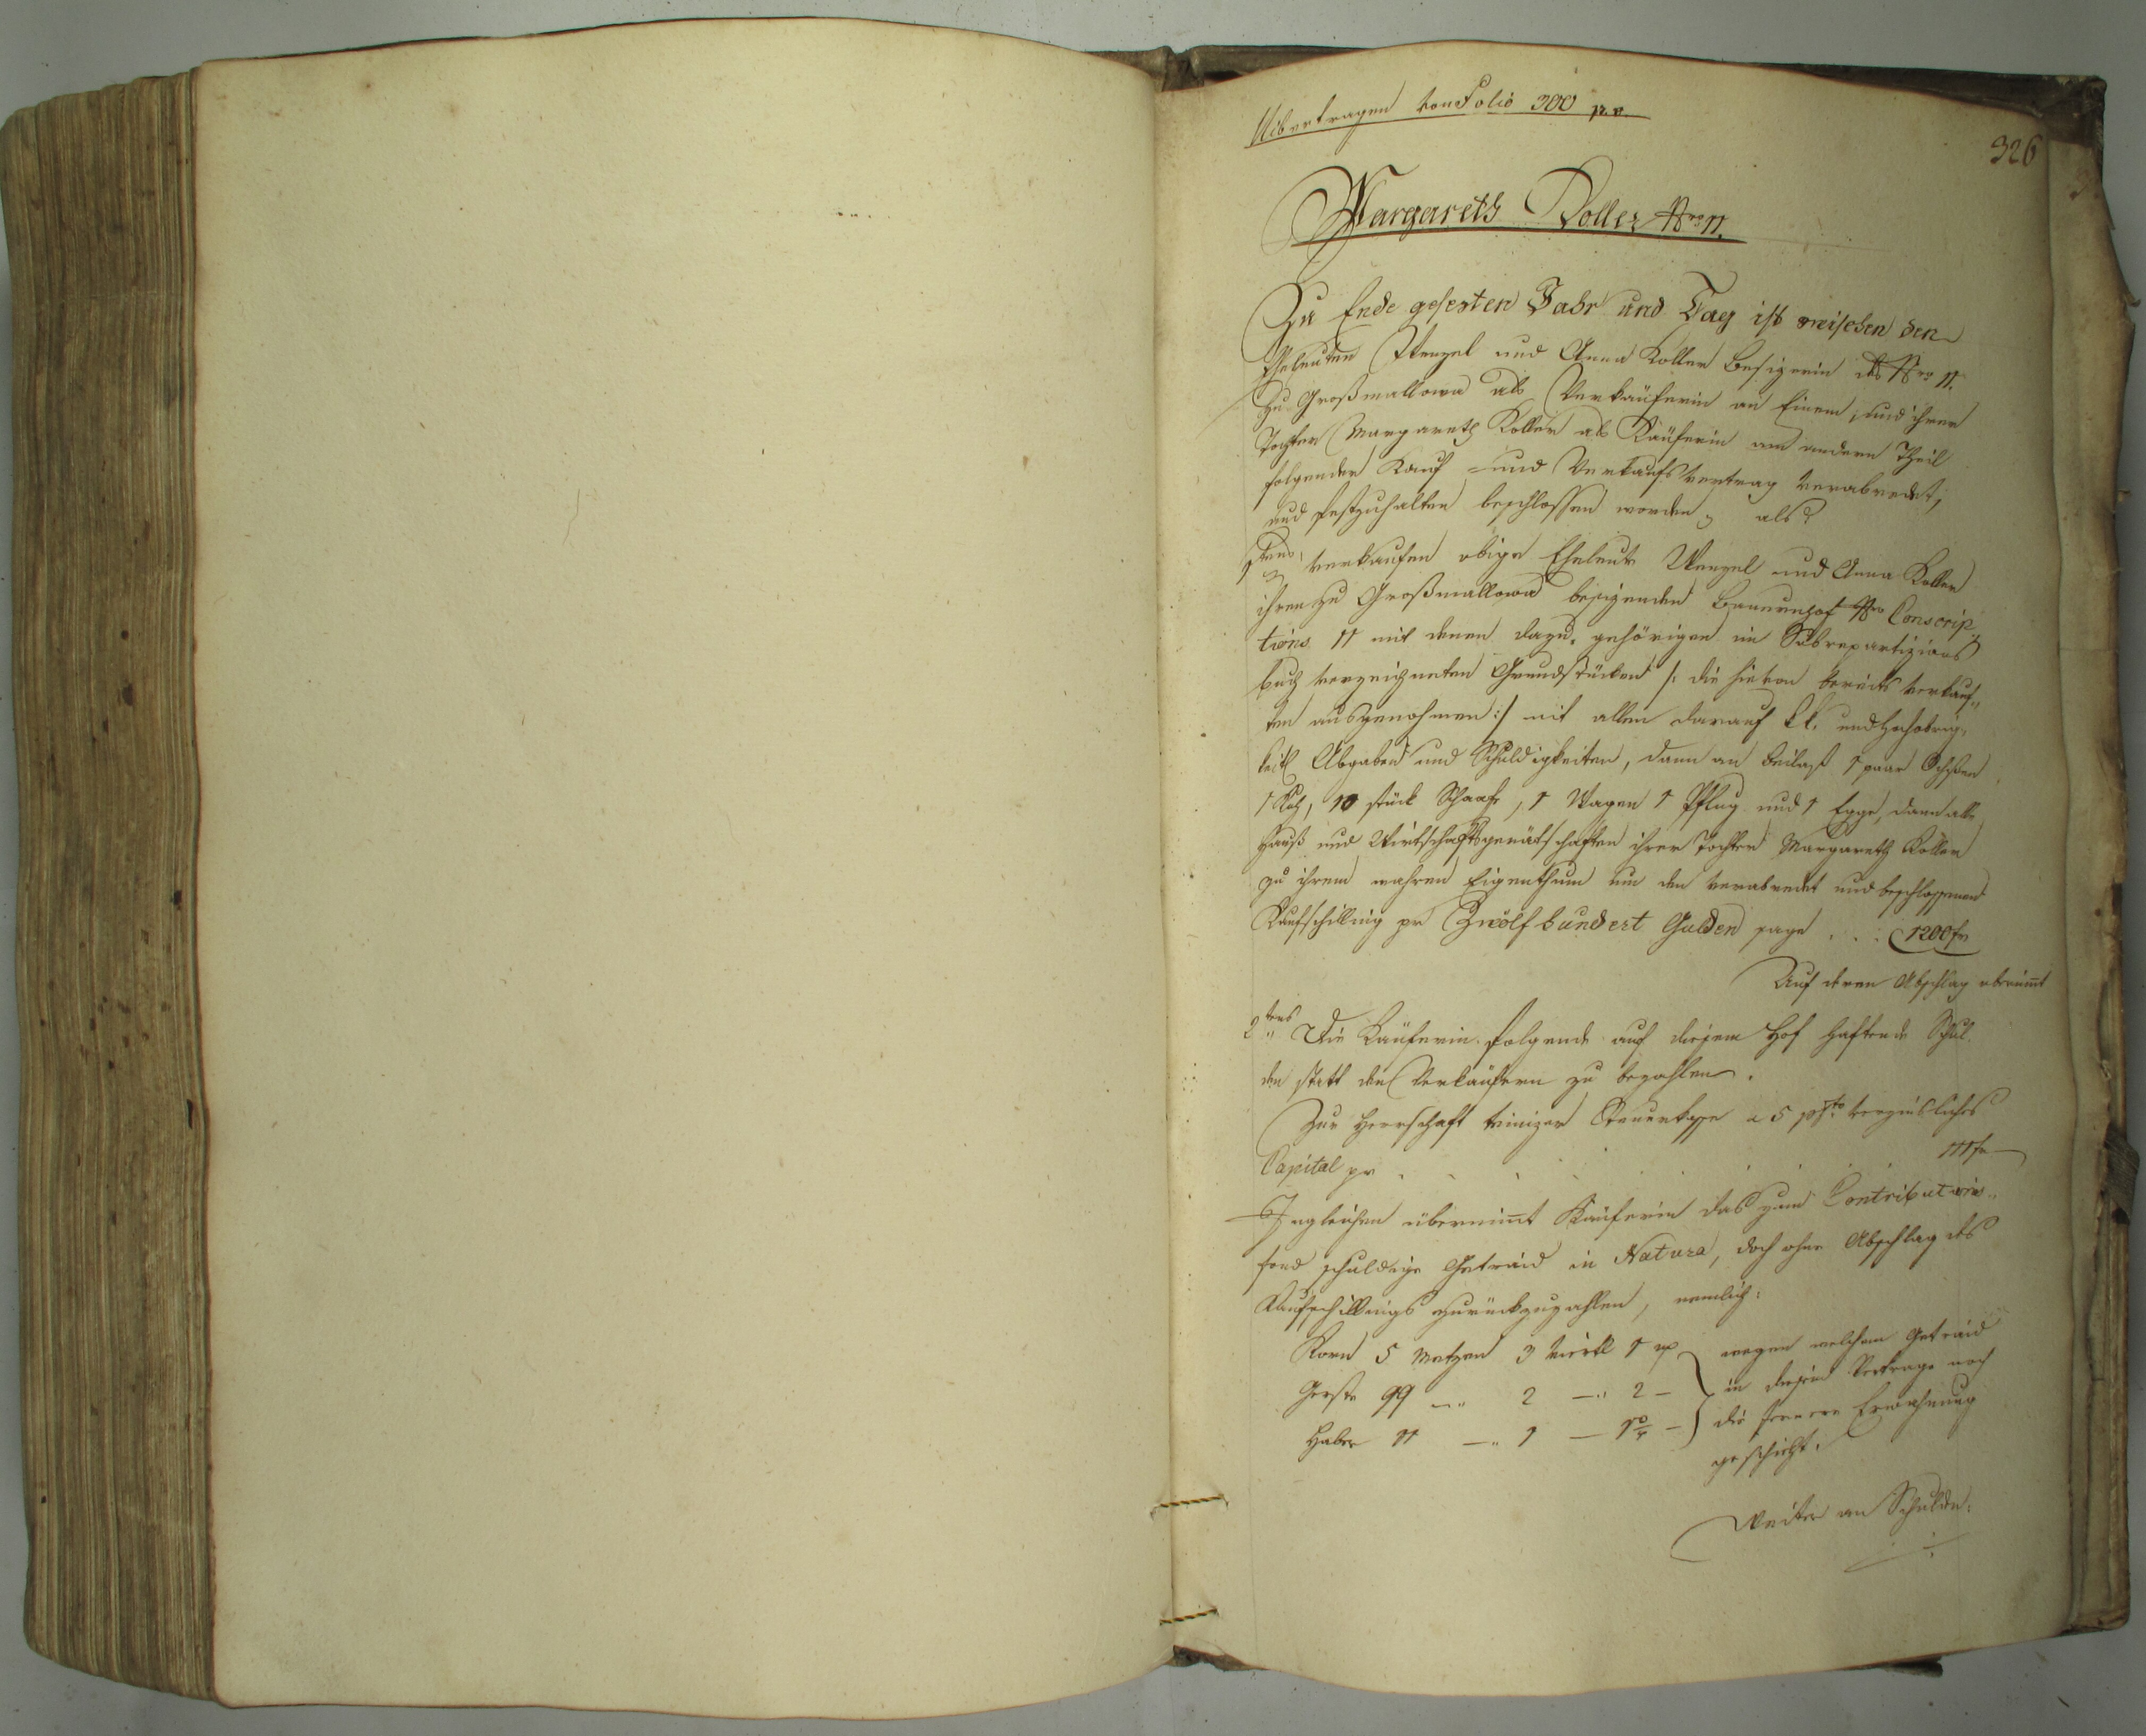 Uibertragen von Folio 300 p. v.
326
Margareth Koller Nro 11.
Zu Ende gesezten Jahr und Tag ist zwischen den
Eheleuten Wenzel und Anna Koller Besizerin des Nro 11.
zu Großmallowa als Verkäuferin an Einem, und ihrer
Tochter Margareth Koller als Käuferin am andern Theil
folgender Kauf- und Verkaufsvertrag verabredet,
und festzuhalten beschlossen worden, als:
1tens verkaufen obige Eheleute Wenzel und Anna Koller
ihren zu Großmallowa besizenden Bauernhof Nro Conscrip
tions 11 mit denen dazu gehörigen im Subrepartizions
buch verzeichneten Grundstücken /: die hievon bereits verkauf„
ten ausgenohmen :/ mit allen darauf und hochobrig„
keitl Abgaben und Schuldigkeiten, dann an Beilaß 1 paar Ochßen
1 Kuh, 10 stück Schaafe, 1 Wagen 1 Pflug und 1 Egge, dann alle
Hauß und Wirtschaftsgerätschaften ihrer Tochter Margareth Koller
zu ihrem wahren Eigenthum um den verabredt und beschlossenen
Kaufschilling pr Zwölfhundert Gulden sage . . . 1200 f
Auf deren Abschlag übernimt
2tens Die Käuferin folgende auf diesem Hof haftende Schul
den statt den Verkäufern zu bezahlen.
Zur Herrschaft Steuerkasse a 5 verzinsliches
Capital pr . . . . . . 111 f
Ingleichen übernimt Käuferin das zum Contributions„
fond schuldige Getraid in Natura, doch ohne Abschlag des
Kaufschillings zurückzuzahlen, nemlich:
Korn 5 Metzen 3 Viertl 1 wegen welchem Getraid
Gerste 99 —" 2 —" 2 — in diesem Vertrage noch
Haber 11 —" 1 — die fernere Erwähnung
geschieht.
Weiter an Schulde: